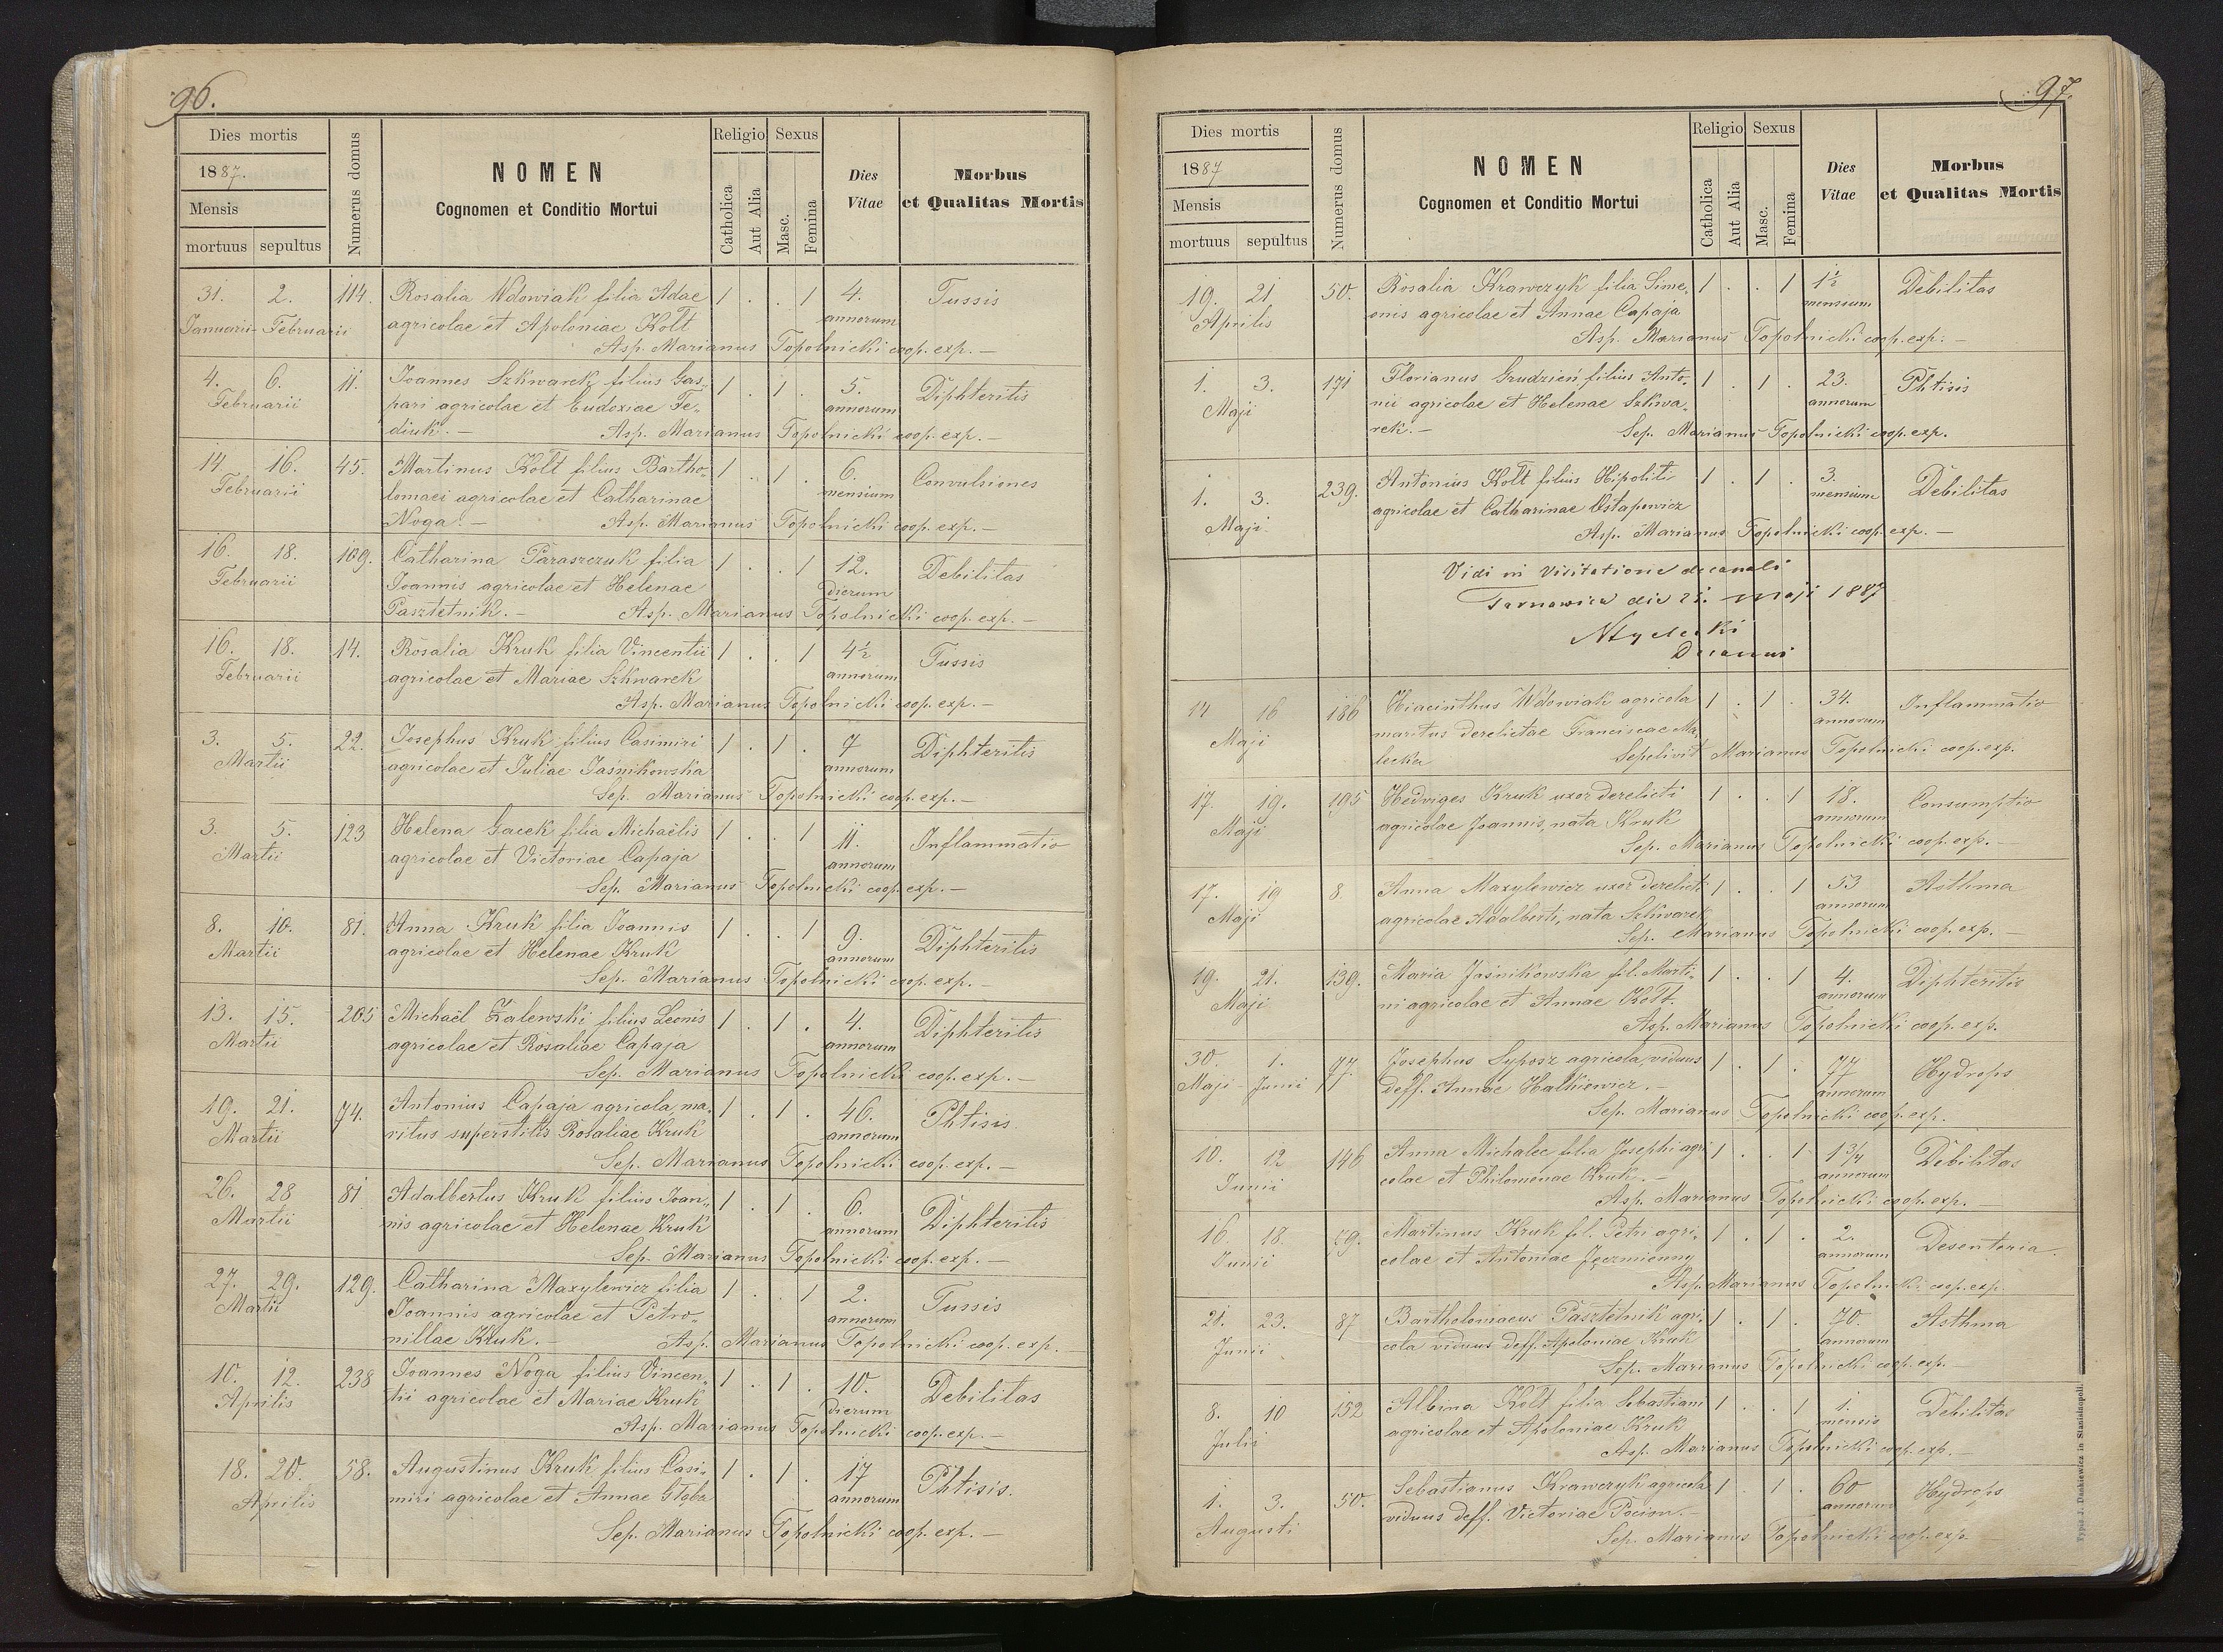 96.
Dies mortis
1887.
Mensis
mortuus sepultus
Numerus domus
NOMEN
Cognomen et Conditio Mortui
Religio
Catholica
Aut Alia
Sexus
Masc.
Femina
Dies
Vitae
Morbus
et Qualitas Mortis
31. 2. 114. Rosalia Wdowiak filia Adae 1 . . 1 4. Tussis
Januarii - Februarii agricolae et Apoloniae Kołt annorum
Asp. Marianus Topolnicki coop. exp. —
4. 6. 11. Joannes Szkwarek filius Gas- 1 . 1 . 5. Diphteritis
Februarii pari agricolae et Eudoxiae Fe- annorum
diuk. — Asp. Marianus Topolnicki coop. exp. —
14. 16. 45. Martinus Kołt filius Bartho- 1 . 1 . 6. Convulsiones
Februarii lomaei agricolae et Catharinae mensium
Noga. — Asp. Marianus Topolnicki coop. exp. —
16. 18. 109. Catharina Paraszczuk filia 1 . . 1 12. Debilitas
Februarii Joannis agricolae et Helenae dierum
Pasztetnik. — Asp. Marianus Topolnicki coop. exp. —
16. 18. 14. Rosalia Kruk filia Vincentii 1 . . 1 4½ Tussis
Februarii agricolae et Mariae Szkwarek annorum
Asp. Marianus Topolnicki coop. exp. —
3. 5. 22. Josephus Kruk filius Casimiri 1 . 1 . 7 Diphteritis
Martii agricolae et Juliae Jaśnikowska annorum
Sep. Marianus Topolnicki coop. exp. —
3. 5. 123 Helena Gacek filia Michaëlis 1 . . 1 11. Inflammatio
Martii agricolae et Victoriae Capaja annorum
Sep. Marianus Topolnicki coop. exp. —
8. 10. 81. Anna Kruk filia Joannis 1 . . 1 9. Diphteritis
Martii agricolae et Helenae Kruk annorum
Sep. Marianus Topolnicki coop. exp. —
13. 15. 205 Michaël Zalewski filius Leonis 1 . 1 . 4. Diphteritis
Martii agricolae et Rosaliae Capaja annorum
Sep. Marianus Topolnicki coop. exp. —
19. 21. 74. Antonius Capaja agricola, ma- 1 . 1 . 46. Phtisis
Martii ritus superstitis Rosaliae Kruk annorum
Sep. Marianus Topolnicki coop. exp. —
26. 28 81 Adalbertus Kruk filius Joan- 1 . 1 . 6. Diphteritis
Martii nis agricolae et Helenae Kruk annorum
Sep. Marianus Topolnicki coop. exp. —
27. 29. 129. Catharina Maxylewicz filia 1 . . 1 2. Tussis
Martii Joannis agricolae et Petro- annorum
nillae Kruk. — Asp. Marianus Topolnicki coop. exp.
10. 12. 238 Joannes Noga filius Vincen- 1 . 1 . 10. Debilitas
Aprilis tii agricolae et Mariae Kruk dierum
Asp. Marianus Topolnicki coop. exp. —
18. 20. 58. Augustinus Kruk filius Casi- 1 . 1 . 17 Phtisis.
Aprilis miri agricolae et Annae annorum
Sep. Marianus Topolnicki coop. exp. —
97.
Dies mortis
1887
Mensis
mortuus sepultus
Numerus domus
NOMEN
Cognomen et Conditio Mortui
Religio
Catholica
Aut Alia
Sexus
Masc.
Femina
Dies
Vitae
Morbus
et Qualitas Mortis
19. 21 50. Rosalia Krawczyk filia Sime- 1 . . 1 1½ Debilitas
Aprilis onis agricolae et Annae Capaja mensium
Asp. Marianus Topolnicki coop. exp. —
1. 3. 171 Florianus Grudzień filius Anto- 1 . 1 . 23. Phtisis
Maji nii agricolae et Helenae Szkwa- annorum
rek. — Sep. Marianus Topolnicki coop. exp.
1. 3. 239. Antonius Kołt filius Hipoliti 1 . 1 . 3. Debilitas
Maji agricolae et Catharinae Ostapowicz mensium
Asp. Marianus Topolnicki coop. exp. —
Vidi in Visitatione decanali
Tarnowica die 25. Maji 1887
Decanus
14 16 186 Hiacinthus Wdowiak agricola 1 . 1 . 34. Inflammatio
Maji maritus derelictae Franciscae Ma- annorum
lecka Sepelivit Marianus Topolnicki coop. exp.
17. 19. 195 Hedviges Kruk uxor derelicti 1 . . 1 18. Consumptio
Maji agricolae Joannis, nata Kruk annorum
Sep. Marianus Topolnicki coop. exp. —
17. 19 8. Anna Maxylewicz uxor derelicti 1 . . 1 53 Asthma
Maji agricolae Adalberti, nata Szkwarek annorum
Sep. Marianus Topolnicki coop. exp. —
19. 21. 139. Maria Jaśnikowska fil. Marti- 1 . . 1 4. Diphteritis
Maji ni agricolae et Annae Kołt. annorum
Asp. Marianus Topolnicki coop. exp.
30. 1. 77. Josephus Syposz agricola, viduus 1 . 1 . 77 Hydrops
Maji - Junii deff. Annae Halkiewicz. — annorum
Sep. Marianus Topolnicki coop. exp.
10. 12 146 Anna Michalec filia Josephi agri- 1 . . 1 1¾ Debilitas
Junii colae et Philomenae Kruk. — annorum
Asp. Marianus Topolnicki coop. exp. —
16. 18. 79. Martinus Kruk fil. Petri agri- 1 . 1 . 2. Desenteria.
Junii colae et Antoniae Jęczmienny annorum
Asp. Marianus Topolnicki coop. exp.
21. 23. 87 Bartholomaeus Pasztetnik agri- 1 . 1 . 70. Asthma
Junii cola viduus deff. Apoloniae Kruk annorum
Sep. Marianus Topolnicki coop. exp.
8. 10 152 Albina Kołt filia Sebastiani 1 . . 1 1. Debilitas
Julii agricolae et Apoloniae Kruk mensis
Asp. Marianus Topolnicki coop. exp. —
1. 3. 50. Sebastianus Krawczyk agricola 1 . 1 . 60 Hydrops
Augusti viduus deff. Victoriae Pocion. — annorum
Sep. Marianus Topolnicki coop. exp.
Typis J. Dankiewicz in Stanislaopoli.